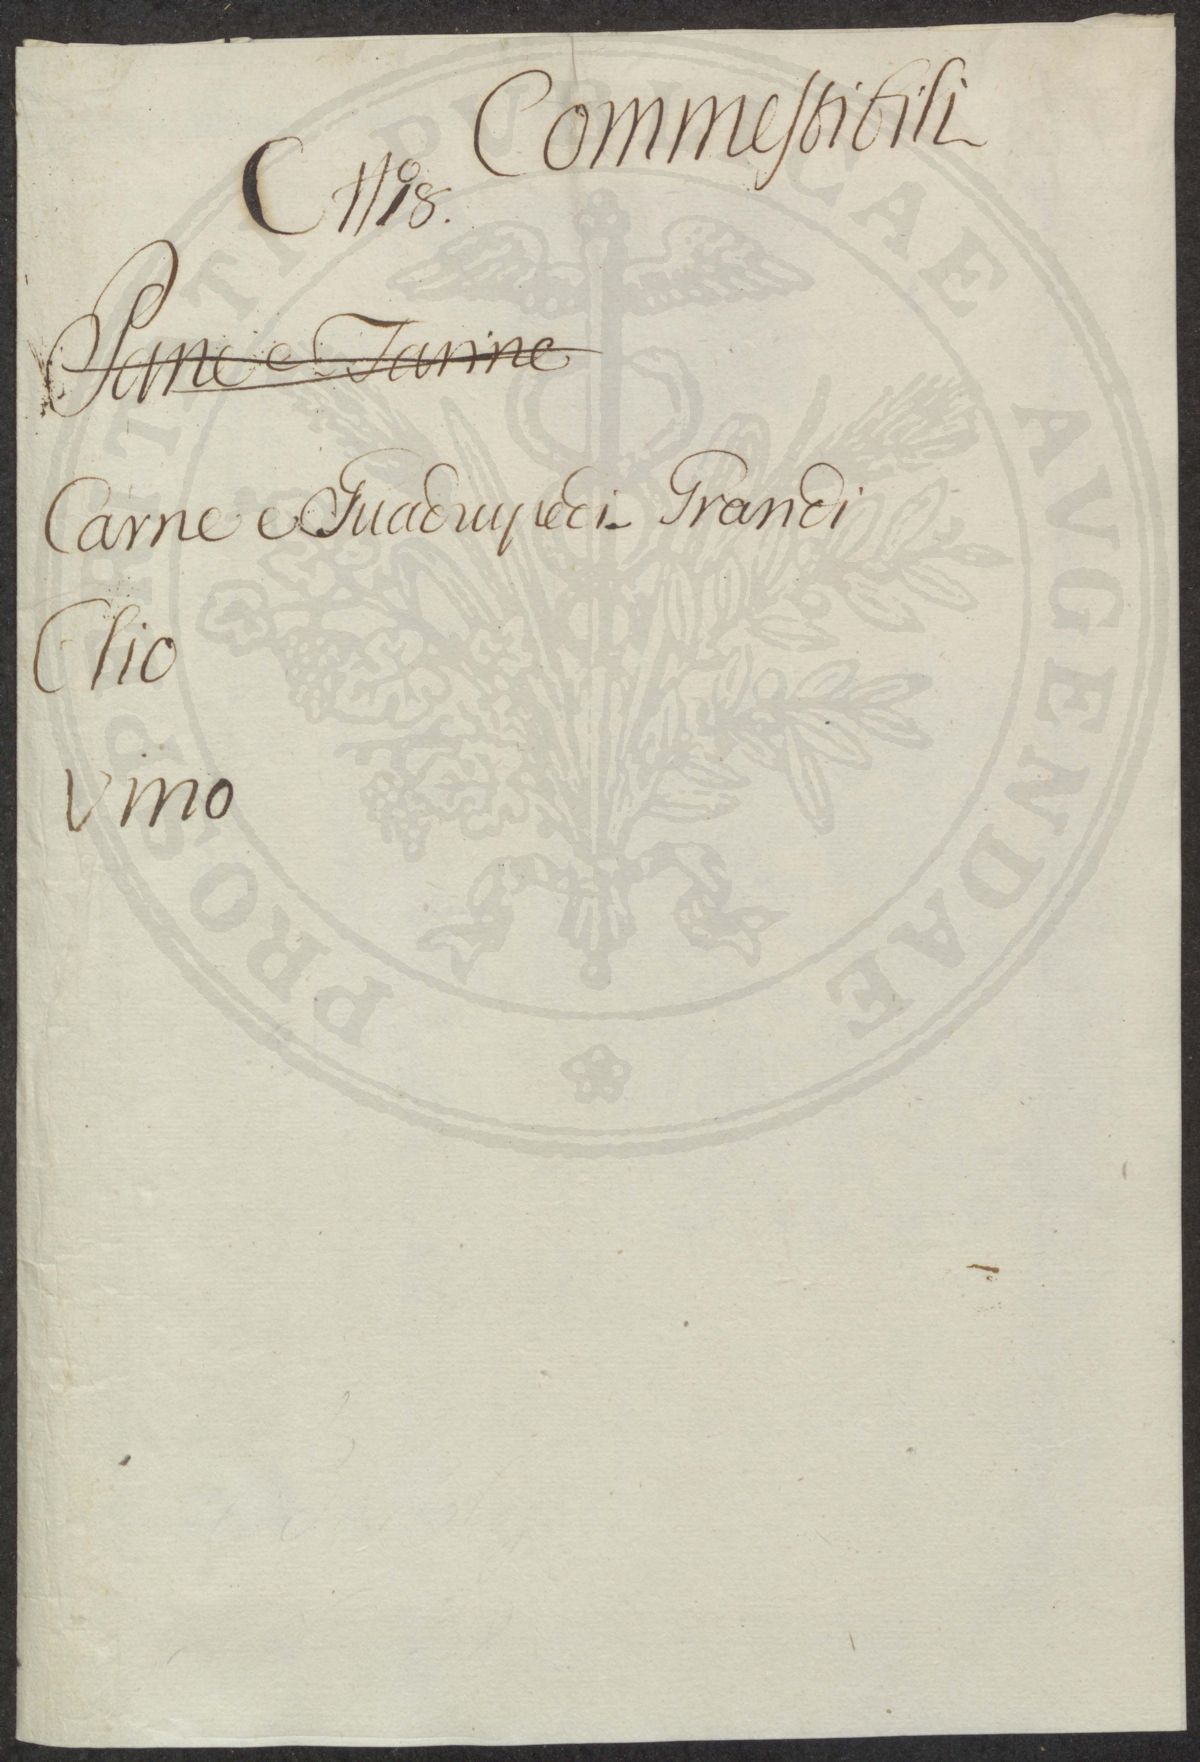 Commestibili
C N.º 8.
Pane e Farine
Carne e Quadrupedi Grandi
Olio
Vino
PROSPERITATI PVBLICAE AVGENDAE